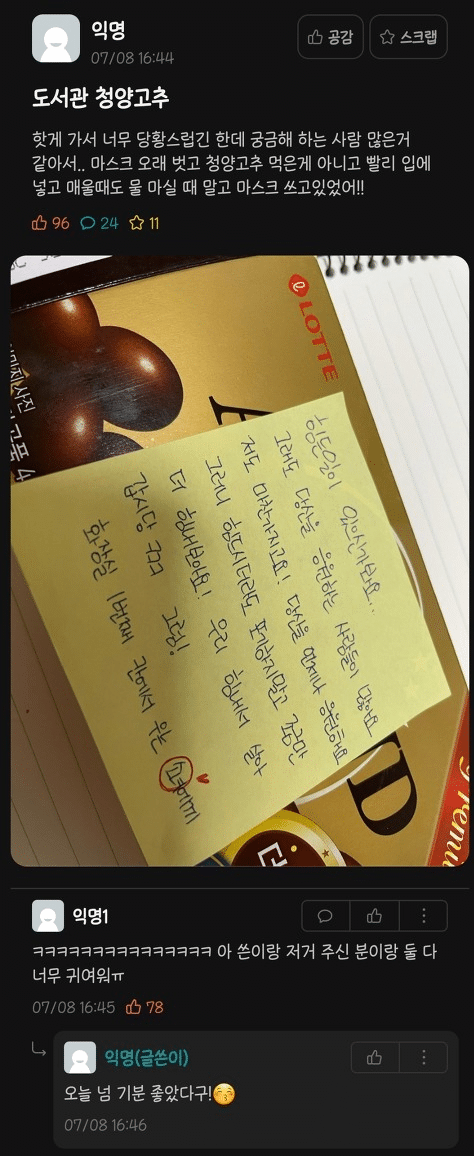 익명
07/08 16:44
공감
스크랩
도서관 청양고추
핫게 가서 너무 당황스럽긴 한데 궁금해 하는 사람 많은거
같아서.. 마스크 오래 벗고 청양고추 먹은게 아니고 빨리 입에
넣고 매울때도 물 마실 때 말고 마스크 쓰고있었어!!
96 24 11
LOTTE
힘든일이 있으신가봐요..
그래도 당신을 응원하는 사람들이 많아요
저도 마찬가지고요! 당신을 언제나 응원해요
그러니 힘드시더라도 포기하지말고 조금만
더 힘내봐요! 우리 힘내서 살아
갑시당 그럼!
화장실 칸에서 우는
익명1
ㅋㅋㅋㅋㅋㅋㅋㅋㅋㅋㅋㅋㅋㅋㅋ 아 쓴이랑 저거 주신 분이랑 둘 다
너무 귀여워ㅠ
07/08 16:45 78
익명(글쓴이)
오늘 넘 기분 좋았다구!😚
07/08 16:46